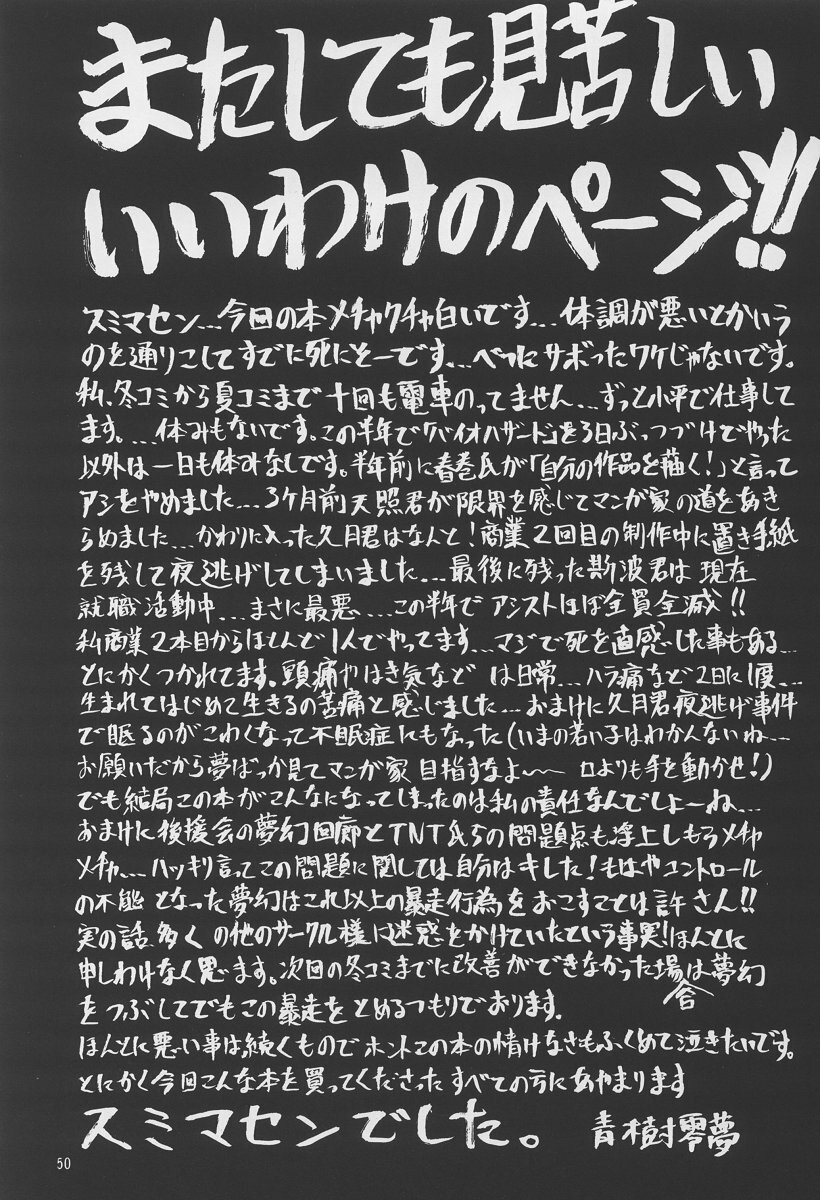 またしても見苦しい
いいわけのページ!!
スミマセン…今回の本メチャクチャ白いです…体調が悪いとかいう
のを通りこしてすでに死にそーです…べつにサボったワケじゃないです。
私、冬コミから夏コミまで十回も電車のってません…ずっと小平で仕事して
ます。…休みもないです。この半年で「バイオハザード」を3日ぶっつづけでやった
以外は一日も休みなしです。半年前に春巻氏が「自分の作品を描く!」と言って
アシをやめました…3ヶ月前天照君が限界を感じてマンガ家の道をあき
らめました…かわりに入った久月君はなんと!商業2回目の制作中に置き手紙
を残して夜逃げしてしまいました…最後に残った斯波君は現在
就職活動中…まさに最悪…この半年でアシストほぼ全員全滅!!
私商業2本目からほとんど1人でやってます…マジで死を直感した事もある…
とにかくつかれてます。頭痛やはき気などは日常…ハラ痛など2日に1度…
生まれてはじめて生きるの苦痛と感じました…おまけに久月君夜逃げ事件
で眠るのがこわくなって不眠症にもなった(いまの若い子はわかんないね…
お願いだから夢ばっか見てマンガ家目指すなよ〜 口よりも手を動かせ!)
でも結局この本がこんなになってしまったのは私の責任なんでしょーね…
おまけに後援会の夢幻回廊とTNT氏らの問題点も浮上しもうメチャ
メチャ…ハッキリ言ってこの問題に関しては自分はキした!もはやコントロール
の不能となった夢幻はこれ以上の暴走行為をおこすことは許さん!!
実の話多くの他のサークル様に迷惑をかけていたという事実!ほんとに
申しわけなく思います。次回の冬コミまでに改善ができなかった場合は夢幻
をつぶしてでもこの暴走をとめるつもりでおります。
ほんとに悪い事は続くものでホントこの本の情けなさもふくめて泣きたいです。
とにかく今回こんな本を買ってくださったすべての方にあやまります
スミマセンでした。 青樹零夢
50